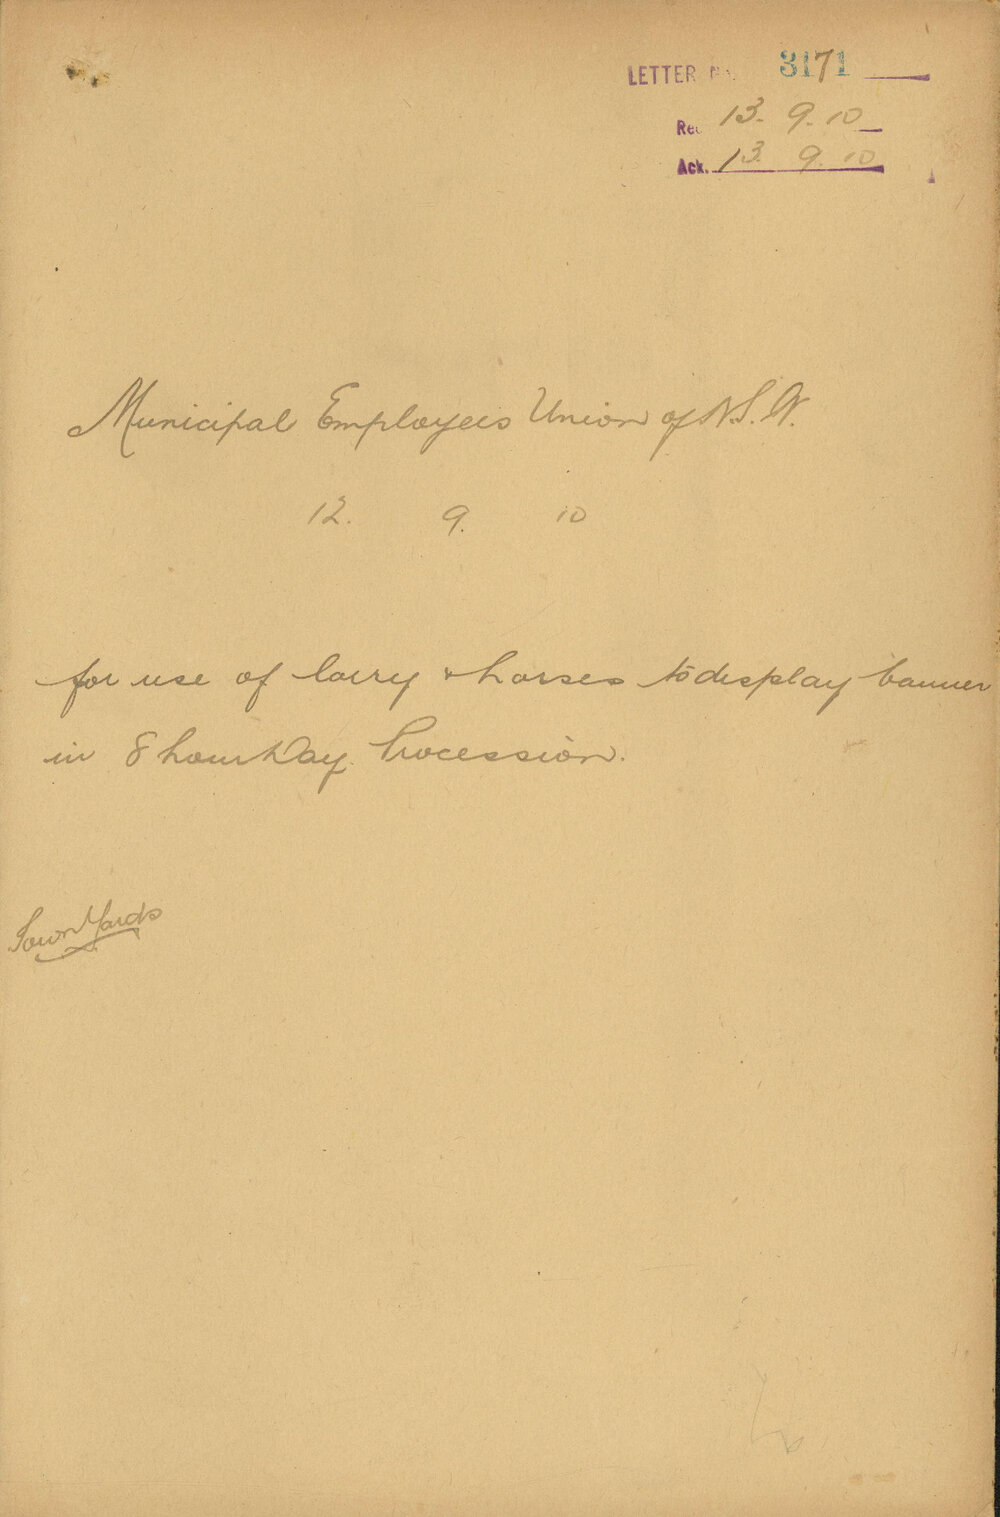 LETTER No. 3171
Rec. 13. 9. 10
Ack. 13. 9. 10
Municipal Employees Union of N.S.W.
12. 9. 10
for use of lorry & horses to display banner
in 8 hour Day Procession.
Town Yards